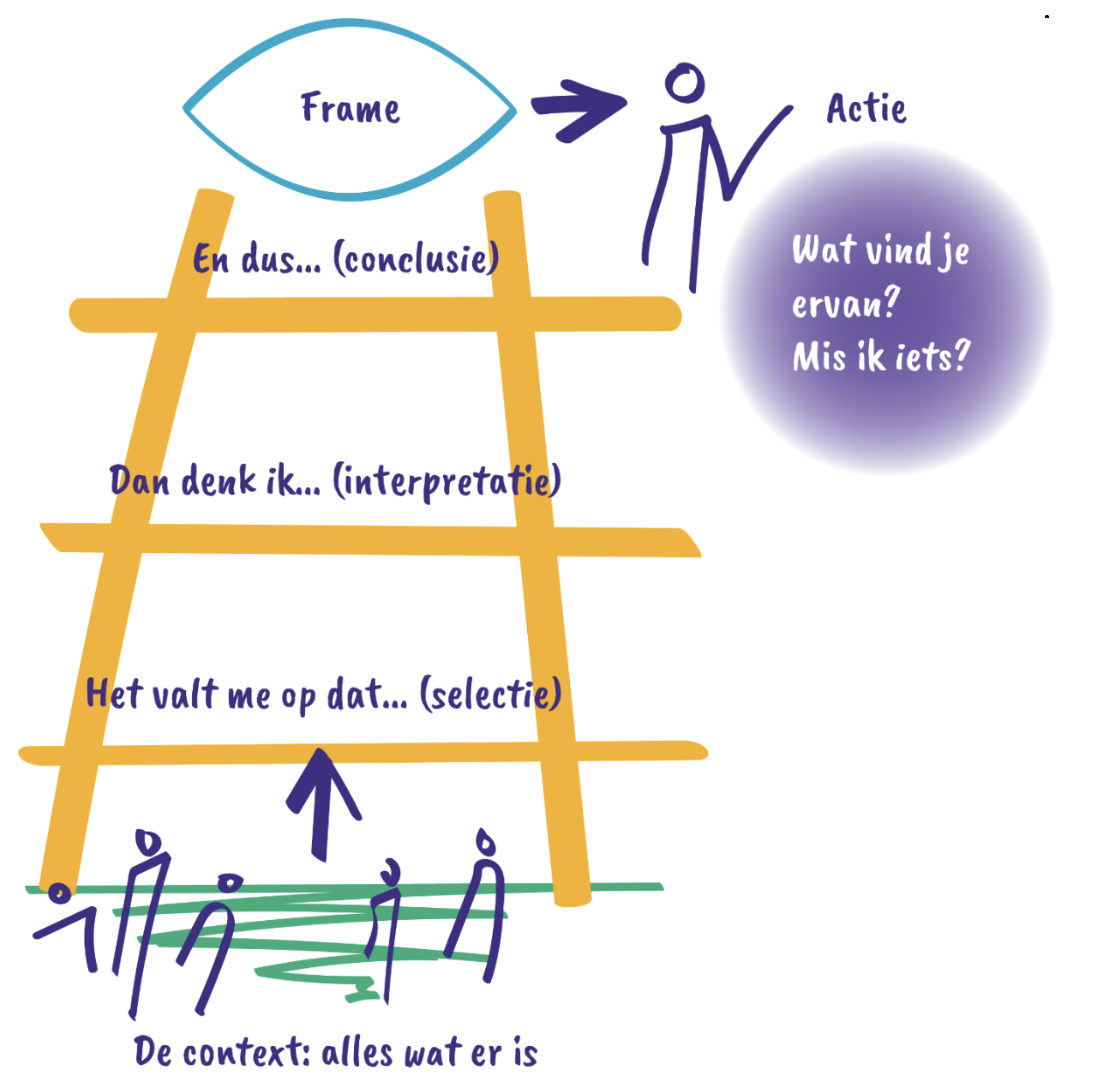 Frame
Actie
Wat vind je
ervan?
Mis ik iets?
En dus... (conclusie)
Dan denk ik... (interpretatie)
Het valt me op dat... (selectie)
De context: alles wat er is